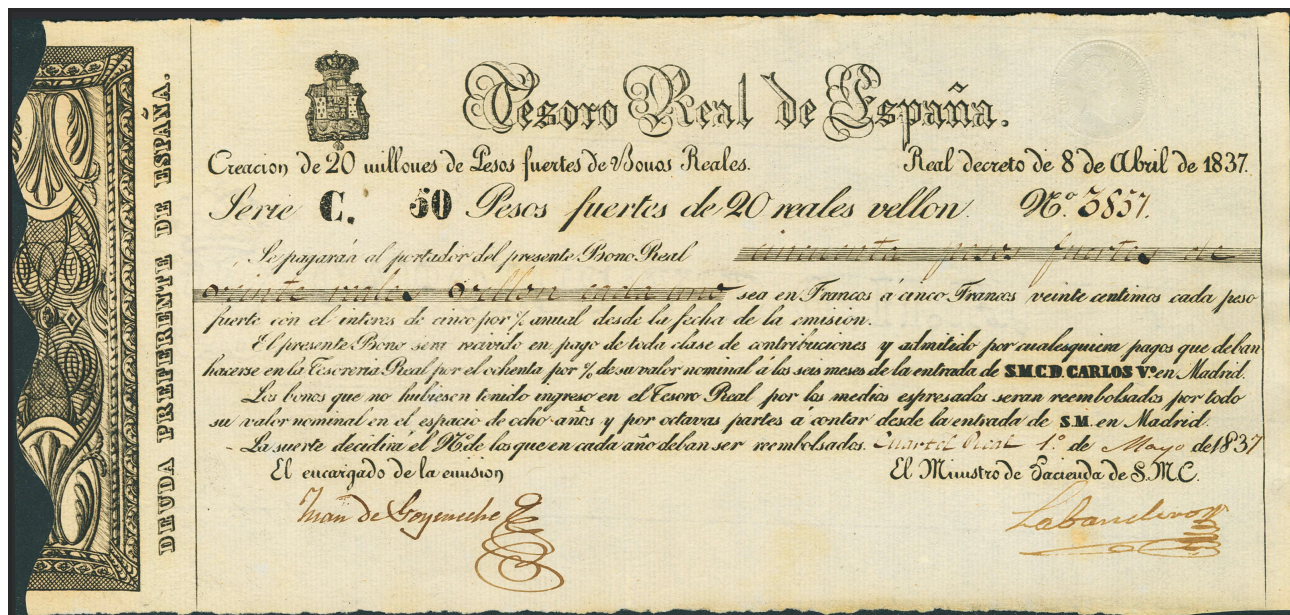 DEUDA PREFERENTE DE ESPAÑA.
Tesoro Real de España.
Creacion de 20 millones de Pesos fuertes de Bonos Reales. Real decreto de 8 de Abril de 1837.
Serie C. 50 Pesos fuertes de 20 reales vellon. Nº 3857.
Se pagarán al portador del presente Bono Real cincuenta pesos fuertes de
veinte reales vellon cada uno sea en Francos á cinco Francos veinte centimos cada peso
fuerte con el interes de cinco por % anual desde la fecha de la emision.
El presente Bono sera recivido en pago de toda clase de contribuciones y admitido por cualesquiera pagos que deban
hacerse en la Tesoreria Real por el ochenta por % de su valor nominal á los seis meses de la entrada de S.M.C.D. CARLOS Vº en Madrid.
Los bonos que no hubiesen tenido ingreso en el Tesoro Real por los medios espresados seran reembolsados por todo
su valor nominal en el espacio de ocho años y por octavas partes á contar desde la entrada de S.M. en Madrid.
La suerte decidirá el Nº de los que en cada año deban ser reembolsados. Cuartel Real 1º de Mayo de 1837
El encargado de la emision El Ministro de Hacienda de S.M.C.
Juan de Goyeneche Labandero